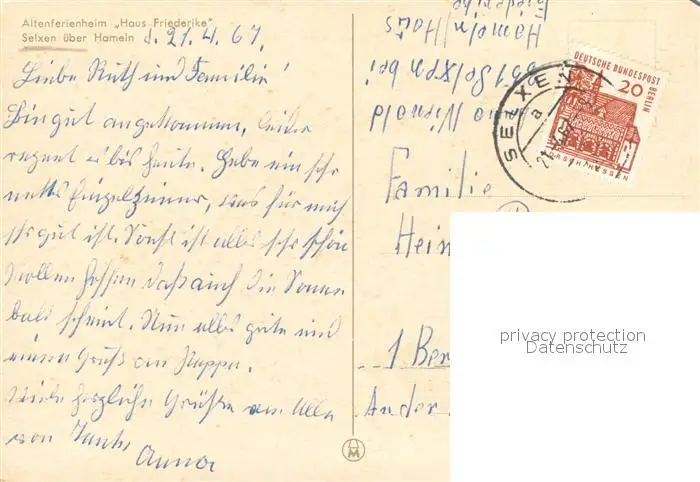 Altenferienheim „Haus Friederike"
Selxen über Hameln d. 21.4.67.
Liebe Ruth und Familie!
Bin gut angekommen, leider
regnet es bis heute. Habe ein sehr
nettes Einzelzimmer, was für mich
sehr gut ist. Sonst ist alles sehr schön
Wollen hoffen daß auch die Sonne
bald scheint. Nun alles gute und
einen Gruß an Pappa.
Viele herzliche Grüße an Alle
von Tante
Anna
Anna Wienold
3251 Selxen bei
Hameln / Haus
Friederike
DEUTSCHE BUNDESPOST BERLIN
20
LORSCH/HESSEN
SELXEN
a
Familie
Hein
1 Ber
An der
M
privacy protection
Datenschutz